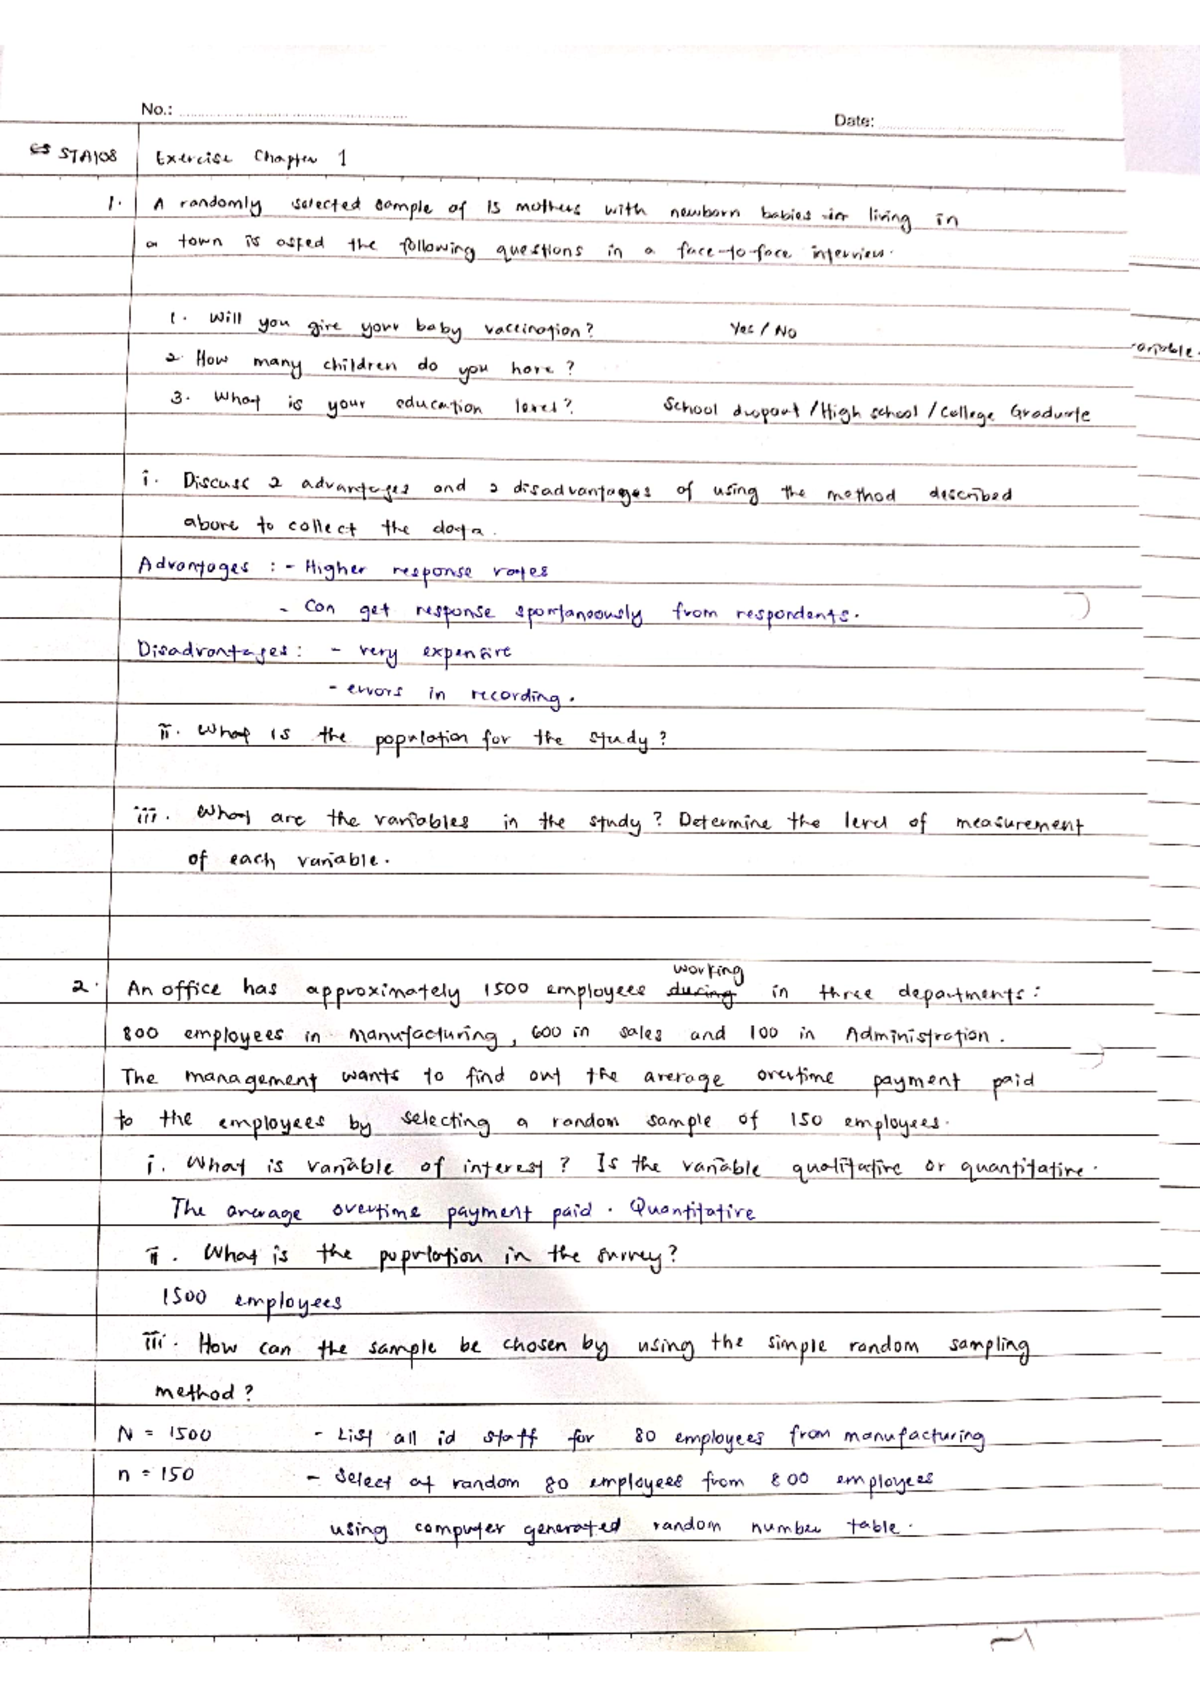 No.:
Date:
STA108 Exercise Chapter 1
1. A randomly selected sample of 15 mothers with newborn babies in living in
a town is asked the following questions in a face-to-face interview.
1. Will you give your baby vaccination? Yes / No
ariable.
2. How many children do you have?
3. What is your education level? School dropout / High school / College Graduate
i. Discuss 2 advantages and 2 disadvantages of using the method described
above to collect the data.
Advantages : - Higher response rates
- Can get response spontaneously from respondents.
Disadvantages : - very expensive
- errors in recording.
ii. What is the population for the study?
iii. What are the variables in the study? Determine the level of measurement
of each variable.
working
2. An office has approximately 1500 employees during in three departments:
800 employees in manufacturing, 600 in sales and 100 in Administration.
The management wants to find out the average overtime payment paid
to the employees by selecting a random sample of 150 employees.
i. What is variable of interest? Is the variable qualitative or quantitative.
The average overtime payment paid. Quantitative
ii. What is the population in the survey?
1500 employees
iii. How can the sample be chosen by using the simple random sampling
method?
N = 1500 - List all id staff for 80 employees from manufacturing
n = 150 - Select at random 80 employees from 800 employees
using computer generated random number table.